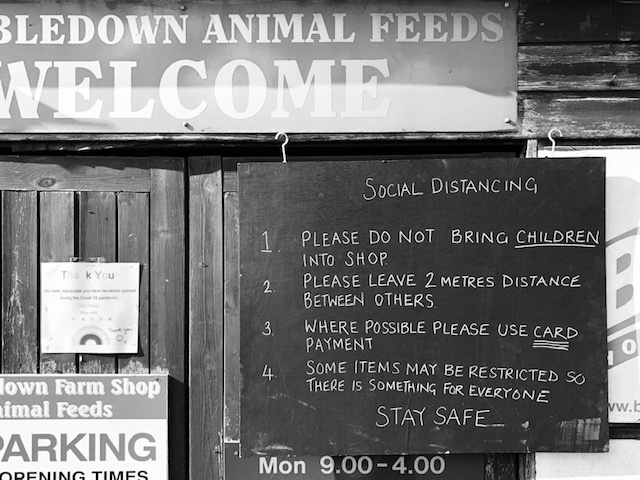 BLEDOWN ANIMAL FEEDS
WELCOME
SOCIAL DISTANCING
1. PLEASE DO NOT BRING CHILDREN
INTO SHOP.
2. PLEASE LEAVE 2 METRES DISTANCE
BETWEEN OTHERS.
3. WHERE POSSIBLE PLEASE USE CARD
PAYMENT
4. SOME ITEMS MAY BE RESTRICTED SO
THERE IS SOMETHING FOR EVERYONE
STAY SAFE
Tha k You
during the Covid-19 pandemic
Thank you
down Farm Shop
nimal Feeds
PARKING
OPENING TIMES
Mon 9.00-4.00
B
HO
ww.b